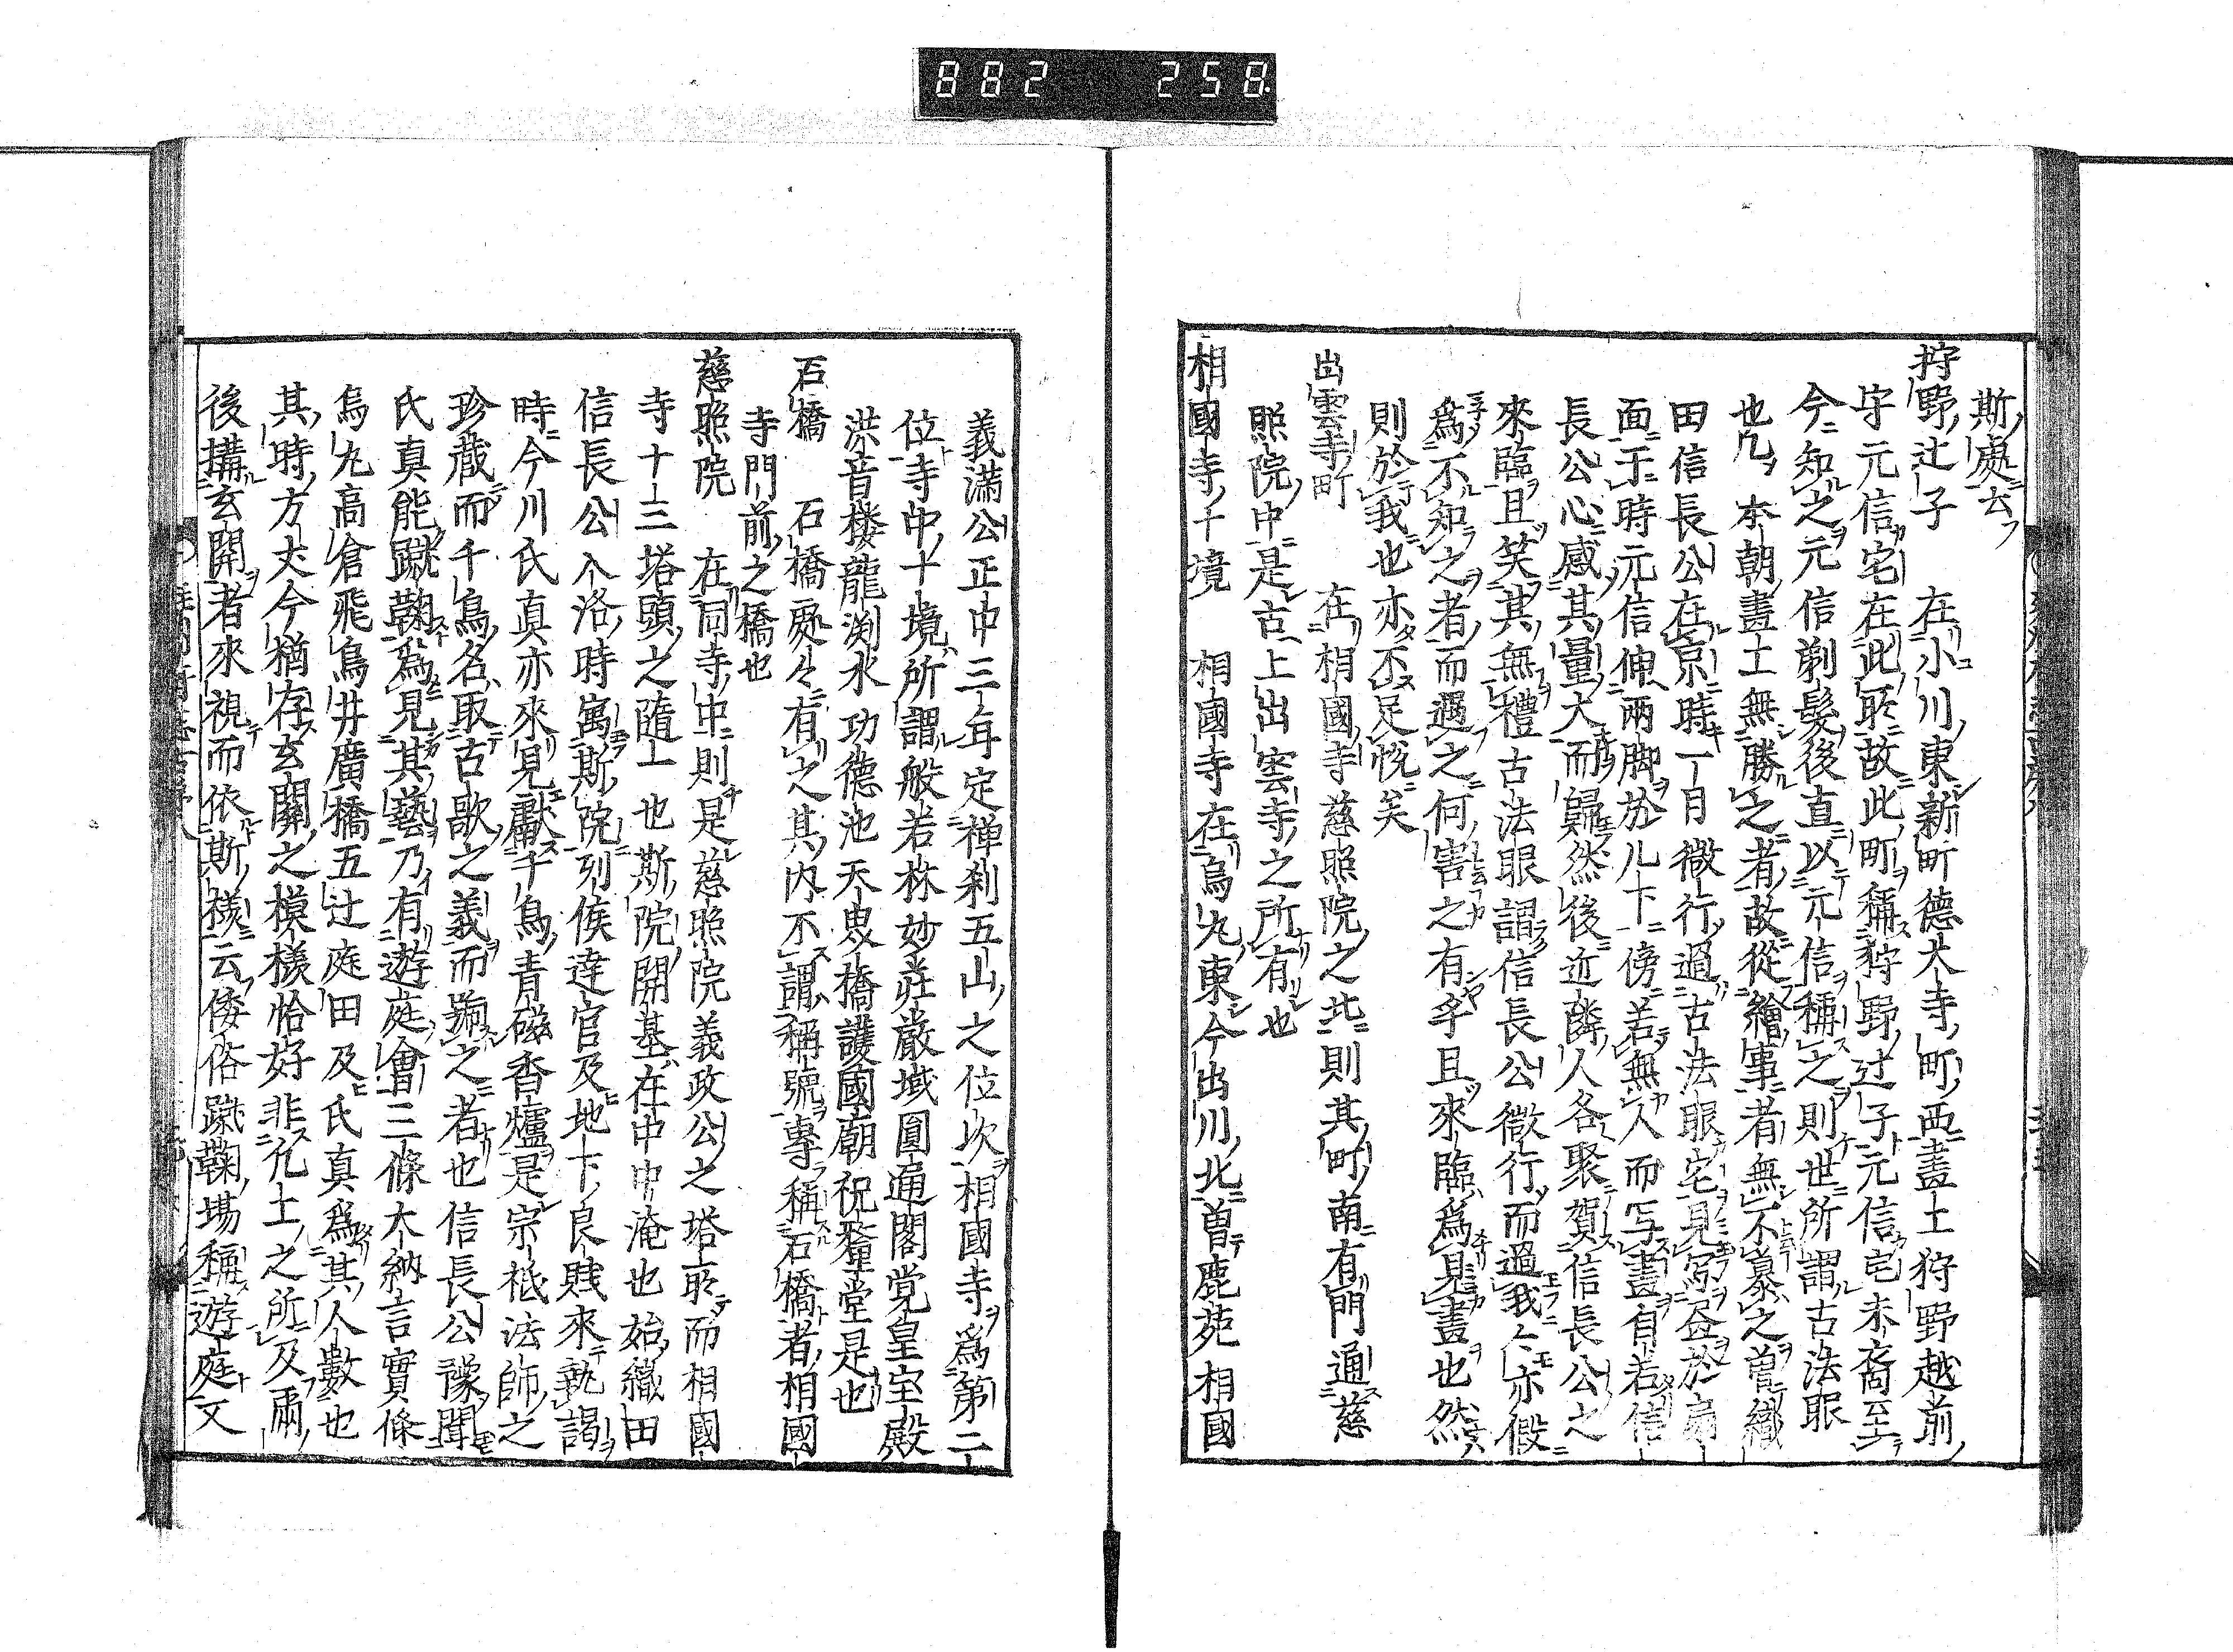 882 258
斯處云
狩野辻子 在小川東新町德大寺町西畫士狩野越前
守元信宅在此耶故此町稱狩野辻子元信宅末裔至
今知之元信剃髮後直以元信稱之則世所謂古法眼
也凡本朝畫士無勝之者故從繪事者無不慕之曽織
田信長公在京時一日微行過古法眼宅見寫於扇
面于時元信伸兩脚於几下傍若無人而写畫自若信
長公心感其量大而歸然後近隣人各聚賀信長公之
來臨且笑其無禮古法眼謂信長公微行而過我々亦假
爲不知之者而遇之何害之有乎且來臨爲見畫也然
則於我也亦不足悅矣
出雲寺町 在相國寺慈照院之北則其町南有門通慈
照院中是古上出雲寺之所有也
相國寺十境 相國寺在烏丸東今出川北曽鹿苑相國
義滿公正中三年定禅刹五山之位次相國寺爲第二
位寺中十境所謂般若林妙莊嚴域圓通閣覚皇宝殿
洪音楼龍渕水功德池天界橋護國廟祝釐堂是也
石橋 石橋處々有之其內不謂稱號專稱石橋者相國
寺門前之橋也
慈照院 在同寺中則是慈照院義政公之塔耶而相國
寺十三塔頭之隨一也斯院開基在中中淹也始織田
信長公入洛時寓斯院列侯達官及地下良賤來執謁
時今川氏真亦來見獻千鳥青磁香爐是宗祗法師之
珍藏而千鳥名取古歌之義而號之者也信長公豫聞
氏真能蹴鞠爲見其藝乃有遊庭會三條大納言實條
烏丸高倉飛鳥井廣橋五辻庭田及氏真爲其人數也
其時方丈今猶存玄關之模様恰好非凡土之所及爾
後搆玄関者來視而依斯様云倭俗蹴鞠場稱遊庭文